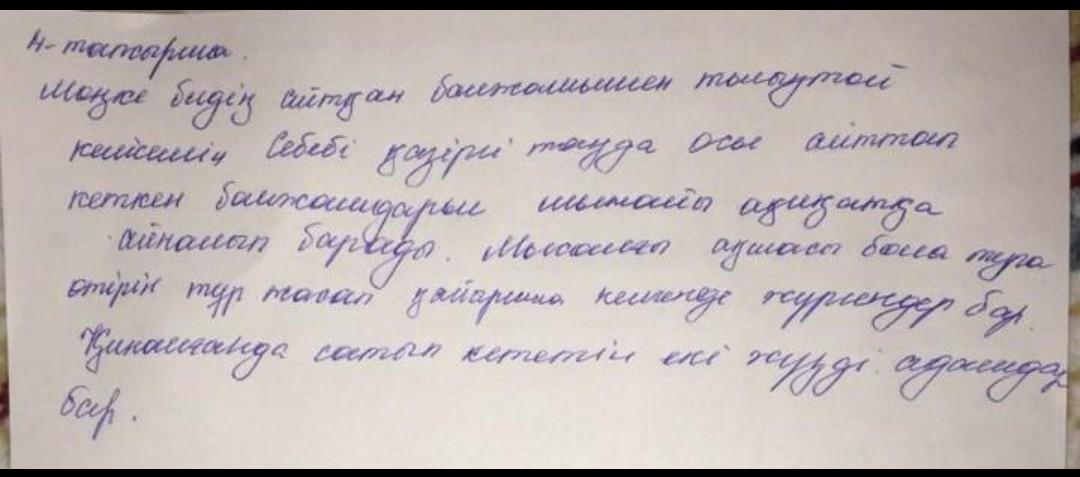 4-тапсырма.
Мөңке бидің айтқан болжамымен толықтай
келісемін Себебі қазіргі таңда осы айттап
кеткен болжамдарың шынайы ақиқатқа
айналып барады. Мысалы ақшасы бола тұра
өтірік түр жасап қайыршы келінде жүргендер бар.
Қиналғанда сатып кететін екі жүзді адамдар
бар.